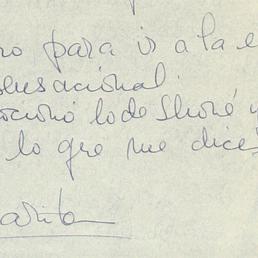 no para ir a la e
sensacional.
lo de Shoré y
lo que me dices
arita